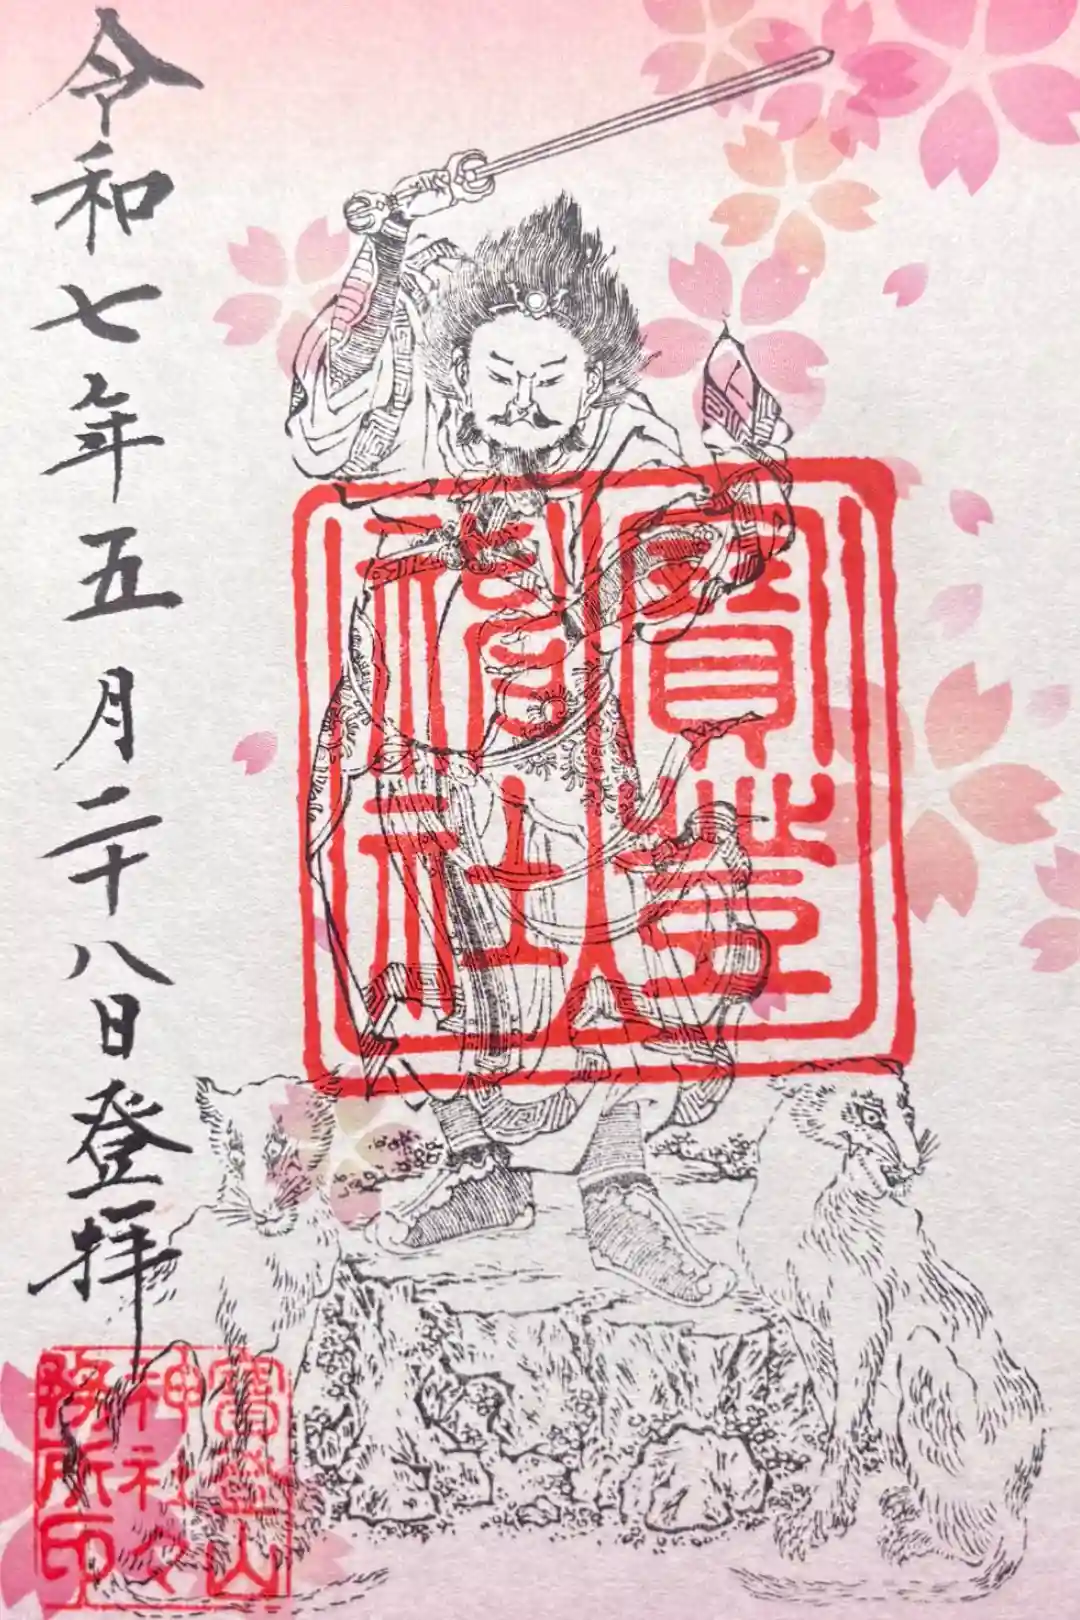 寶登
神社
令和七年五月二十八日登拝
寶登山
神社々
務所印